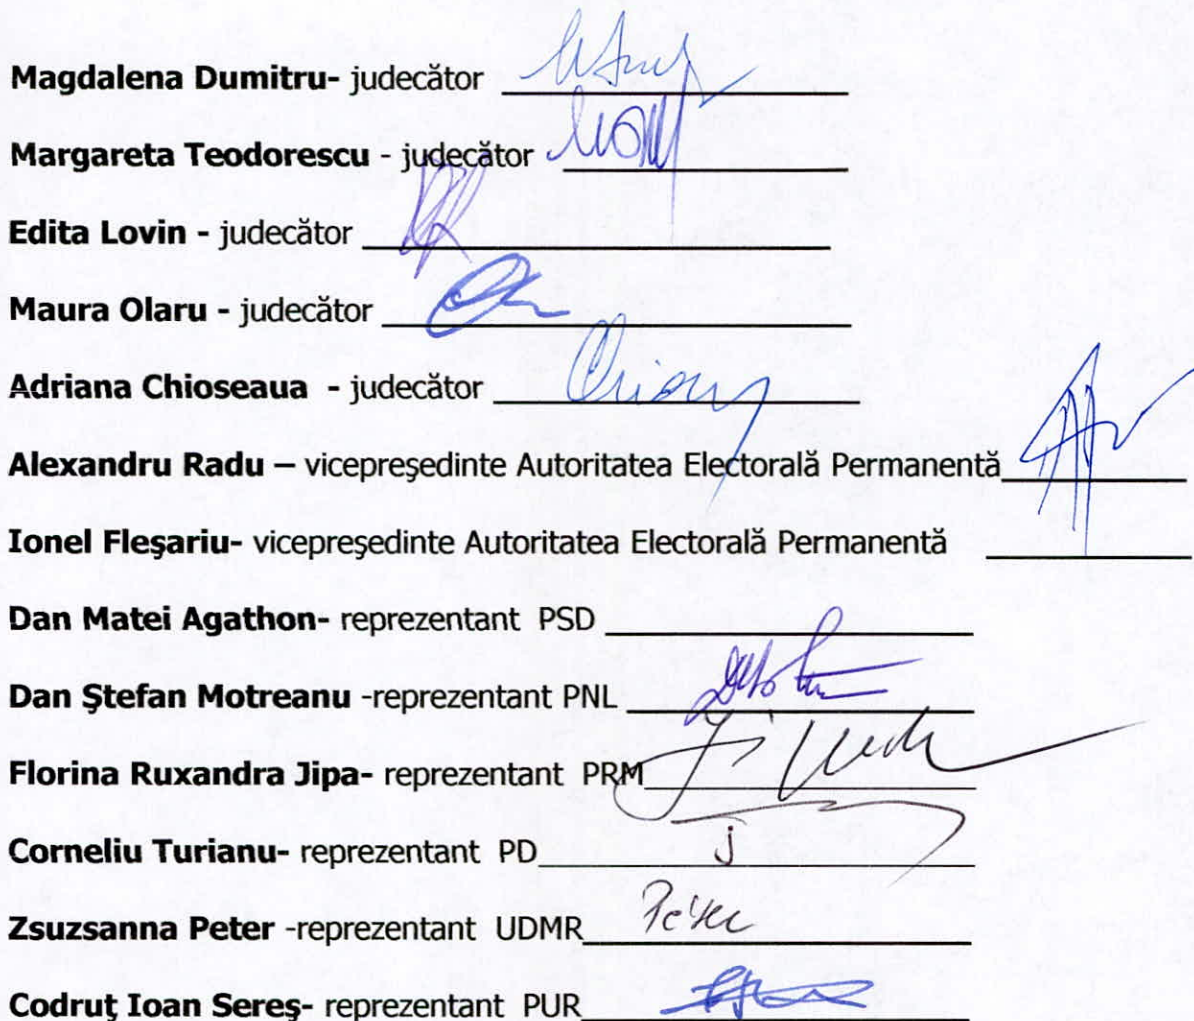 Magdalena Dumitru- judecător
Margareta Teodorescu - judecător
Edita Lovin - judecător
Maura Olaru - judecător
Adriana Chioseaua - judecător
Alexandru Radu – vicepreşedinte Autoritatea Electorală Permanentă
Ionel Fleşariu- vicepreşedinte Autoritatea Electorală Permanentă
Dan Matei Agathon- reprezentant PSD
Dan Ştefan Motreanu -reprezentant PNL
Florina Ruxandra Jipa- reprezentant PRM
Corneliu Turianu- reprezentant PD
Zsuzsanna Peter -reprezentant UDMR
Codruţ Ioan Sereş- reprezentant PUR